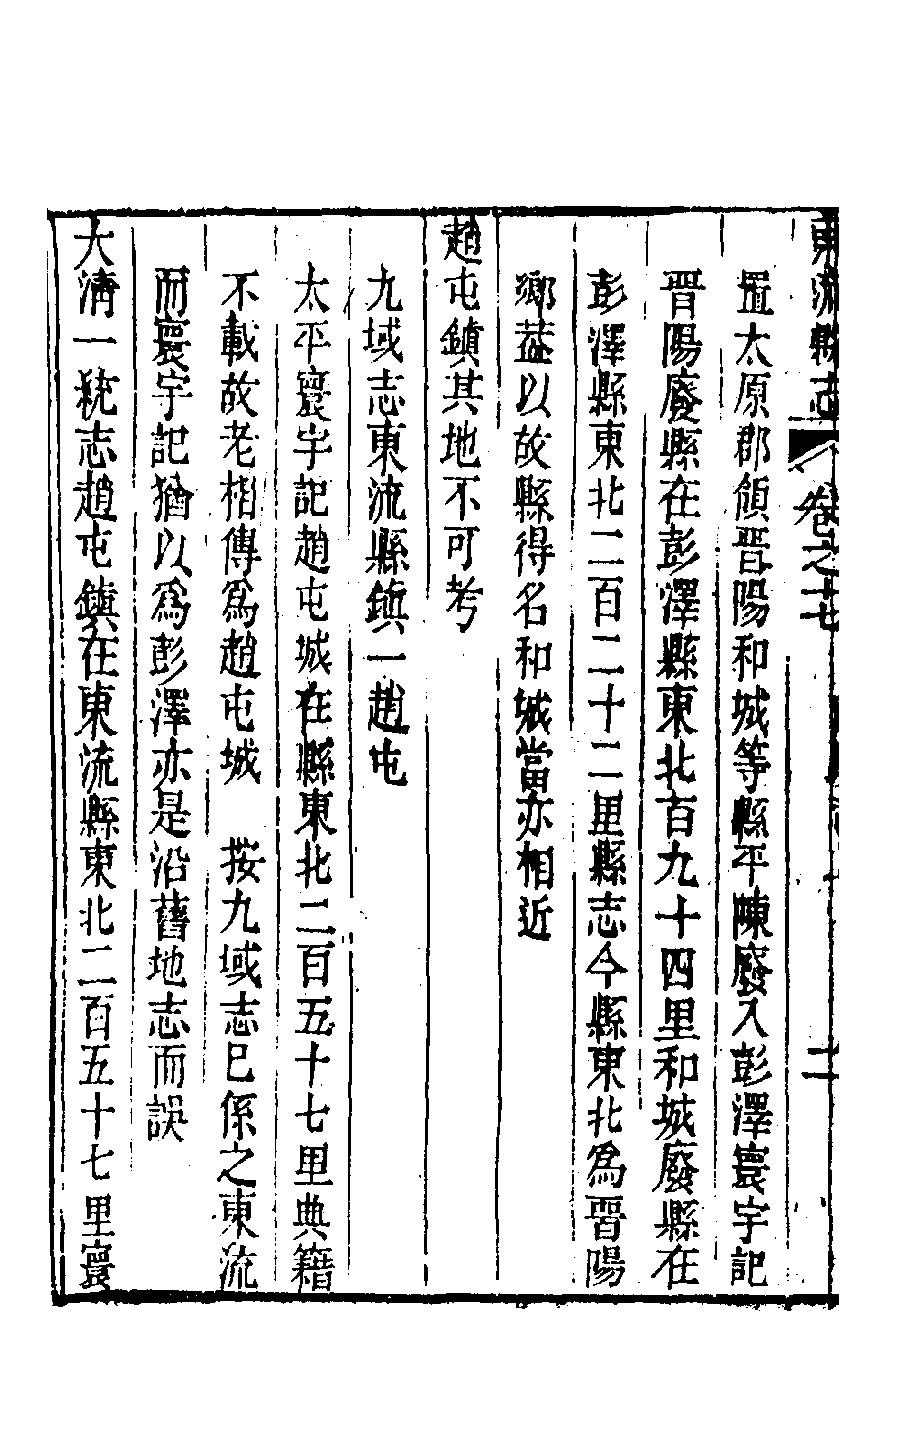 東流縣志 卷之十七 二
置太原郡領晋陽和城等縣平陳廢入彭澤寰宇記
晋陽廢縣在彭澤縣東北百九十四里和城廢縣在
彭澤縣東北二百二十二里縣志今縣東北爲晋陽
鄉葢以故縣得名和城當亦相近
趙屯鎮其地不可考
九域志東流縣鎮一趙屯
太平寰宇記趙屯城在縣東北二百五十七里典籍
不載故老相傳爲趙屯城 按九域志已係之東流
而寰宇記猶以爲彭澤亦是沿舊地志而誤
大清一統志趙屯鎮在東流縣東北二百五十七里寰